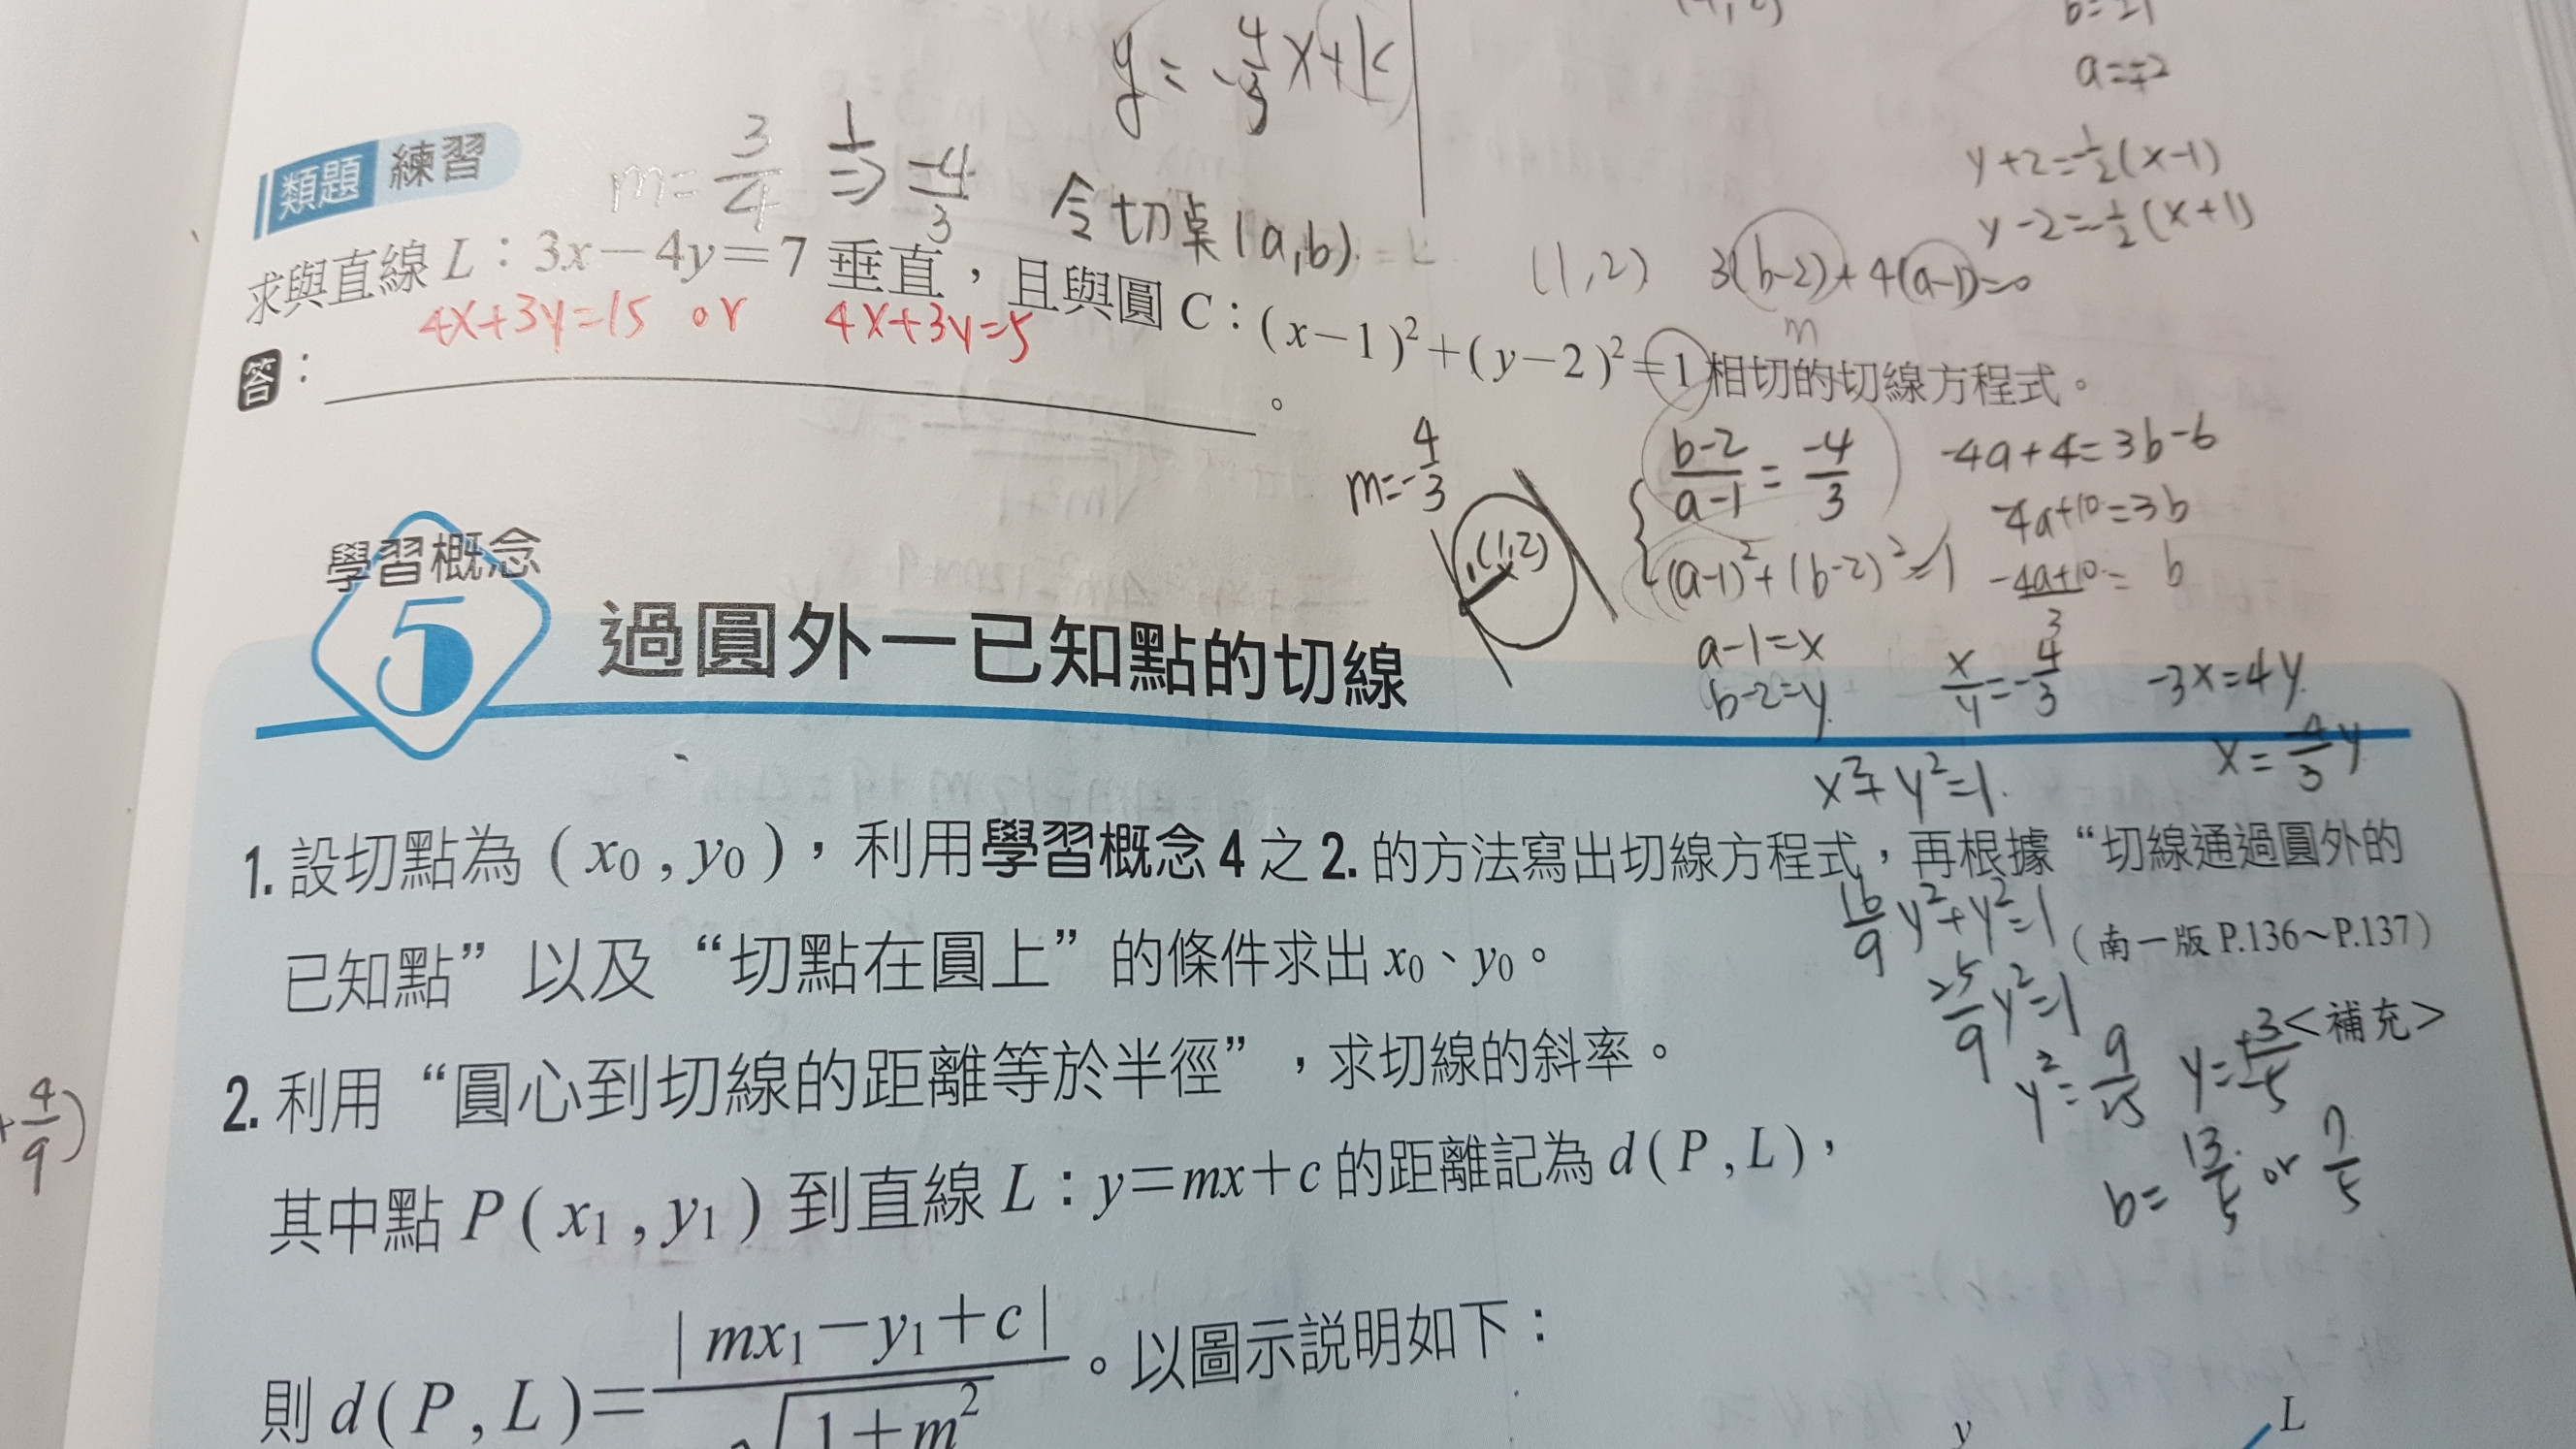 y = -4/3 x + k
b = ±1
a = ∓2
y+2=-1/2(x-1)
y-2=-1/2(x+1)
類題 練習
m = 3/4 ⊥⇒ -4/3
令切桌(a,b).
(1,2) 3(b-2)+4(a-1)=0
m
求與直線 L：3x－4y＝7 垂直，且與圓 C：(x－1)²＋(y－2)²＝1 相切的切線方程式。
4x+3y=15 or 4x+3y=5
答：
。
m=-4/3
(1,2)
(b-2)/(a-1) = -4/3
(a-1)²+(b-2)²=1
-4a+4=3b-6
-4a+10=3b
(-4a+10)/3 = b
a-1=x
b-2=y
x/y=-4/3
-3x=4y
x²+y²=1.
x=-4/3 y
16/9 y²+y²=1
25/9 y²=1
y²=9/25
y=±3/5
b=13/5 or 7/5
學習概念
5
過圓外一已知點的切線
1. 設切點為 (x₀ , y₀)，利用學習概念 4 之 2. 的方法寫出切線方程式，再根據“切線通過圓外的
已知點”以及“切點在圓上”的條件求出 x₀、y₀。
(南一版 P.136～P.137)
2. 利用“圓心到切線的距離等於半徑”，求切線的斜率。
<補充>
其中點 P(x₁ , y₁) 到直線 L：y＝mx＋c 的距離記為 d(P , L)，
則 d(P , L)＝|mx₁－y₁＋c|/√(1＋m²)。以圖示説明如下：
+4/9)
y
L